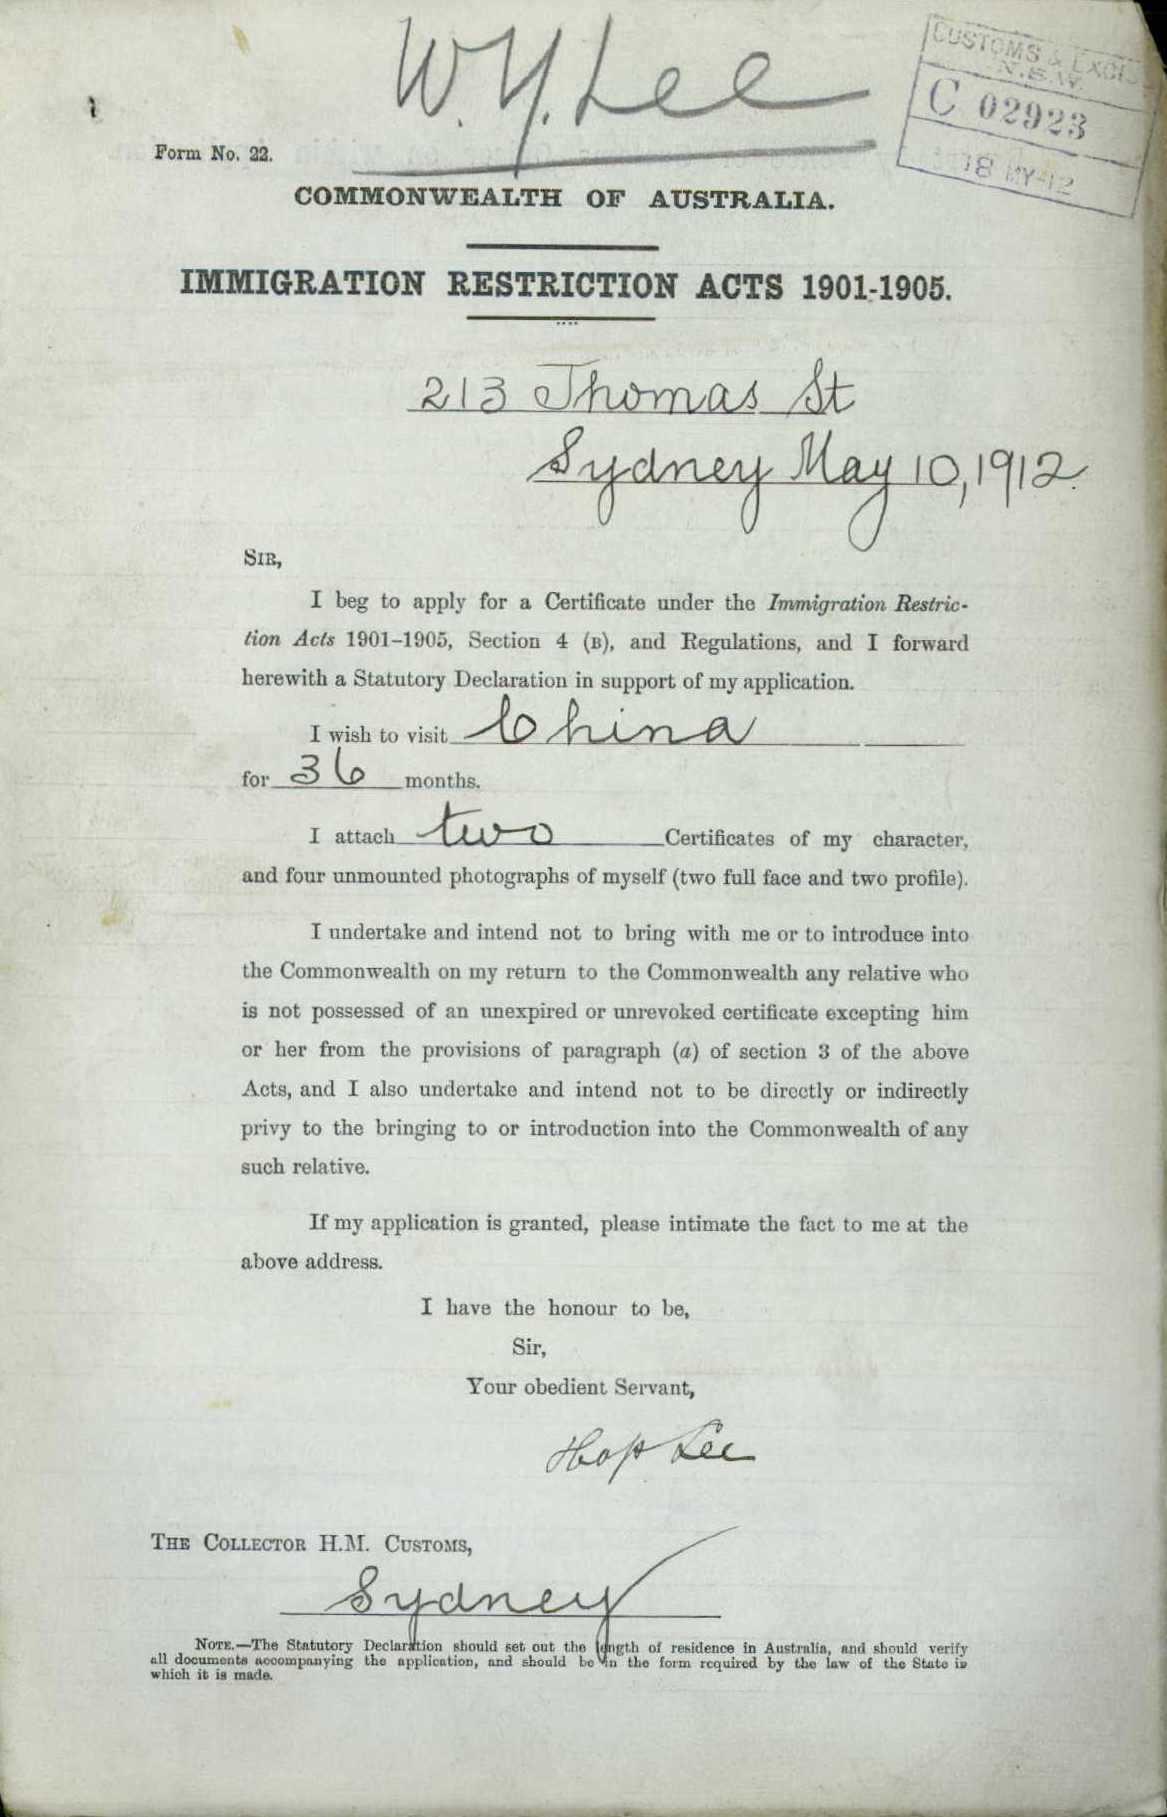 W. Y. Lee
CUSTOMS & EXCI
N.S.W.
C 02923
18 MY 12
Form No. 22.
COMMONWEALTH OF AUSTRALIA.
IMMIGRATION RESTRICTION ACTS 1901-1905.
213 Thomas St
Sydney May 10, 1912.
SIR,
I beg to apply for a Certificate under the Immigration Restric-
tion Acts 1901–1905, Section 4 (B), and Regulations, and I forward
herewith a Statutory Declaration in support of my application.
I wish to visit China
for 36 months.
I attach two Certificates of my character,
and four unmounted photographs of myself (two full face and two profile).
I undertake and intend not to bring with me or to introduce into
the Commonwealth on my return to the Commonwealth any relative who
is not possessed of an unexpired or unrevoked certificate excepting him
or her from the provisions of paragraph (a) of section 3 of the above
Acts, and I also undertake and intend not to be directly or indirectly
privy to the bringing to or introduction into the Commonwealth of any
such relative.
If my application is granted, please intimate the fact to me at the
above address.
I have the honour to be,
Sir,
Your obedient Servant,
Hop Lee
THE COLLECTOR H.M. CUSTOMS,
Sydney
NOTE.—The Statutory Declaration should set out the length of residence in Australia, and should verify
all documents accompanying the application, and should be in the form required by the law of the State in
which it is made.